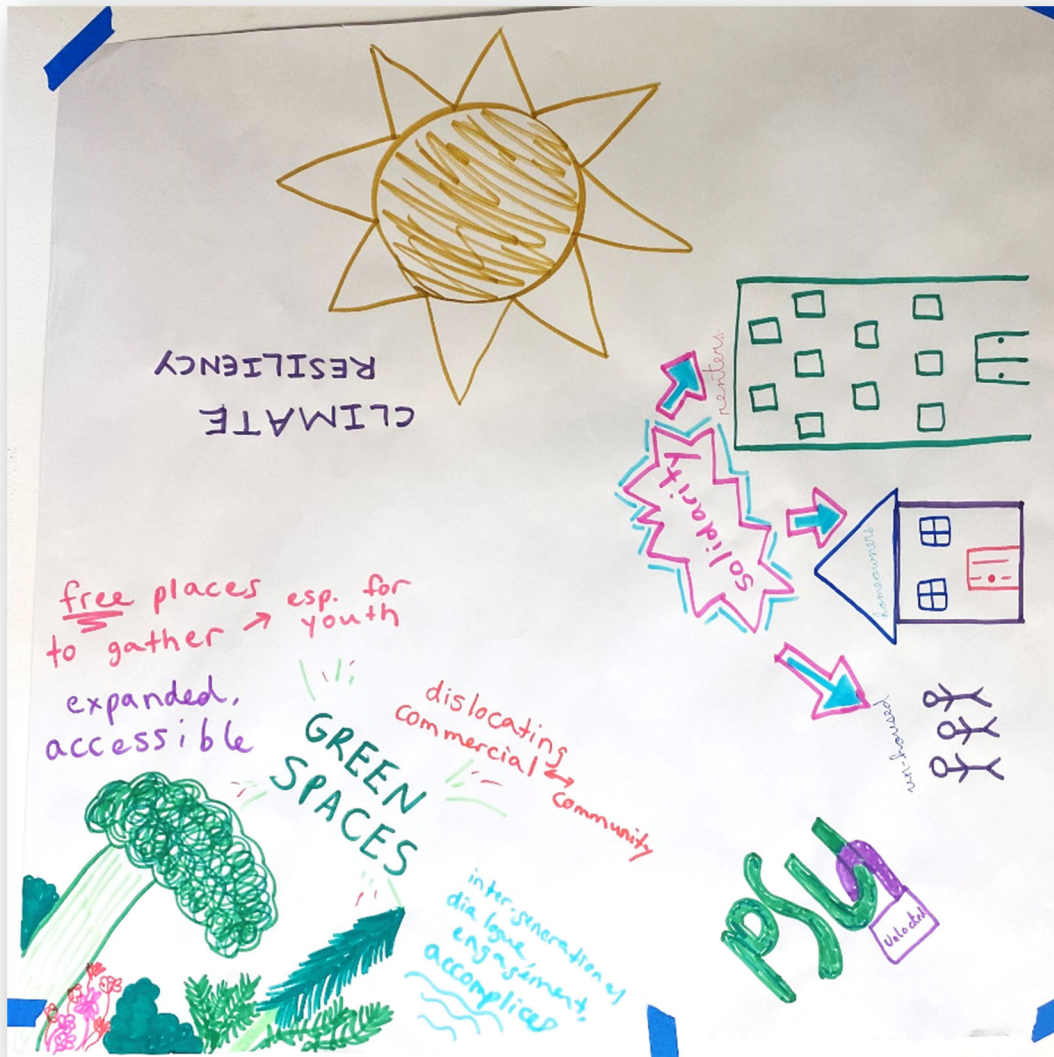 CLIMATE
RESILIENCY
renters
solidarity
homeowners
un-housed
free places
to gather → esp. for
youth
expanded,
accessible
GREEN
SPACES
dislocating
commercial ↔
community
intergenerational
dialogue,
engagement,
accomplices
PSU
Unlocked